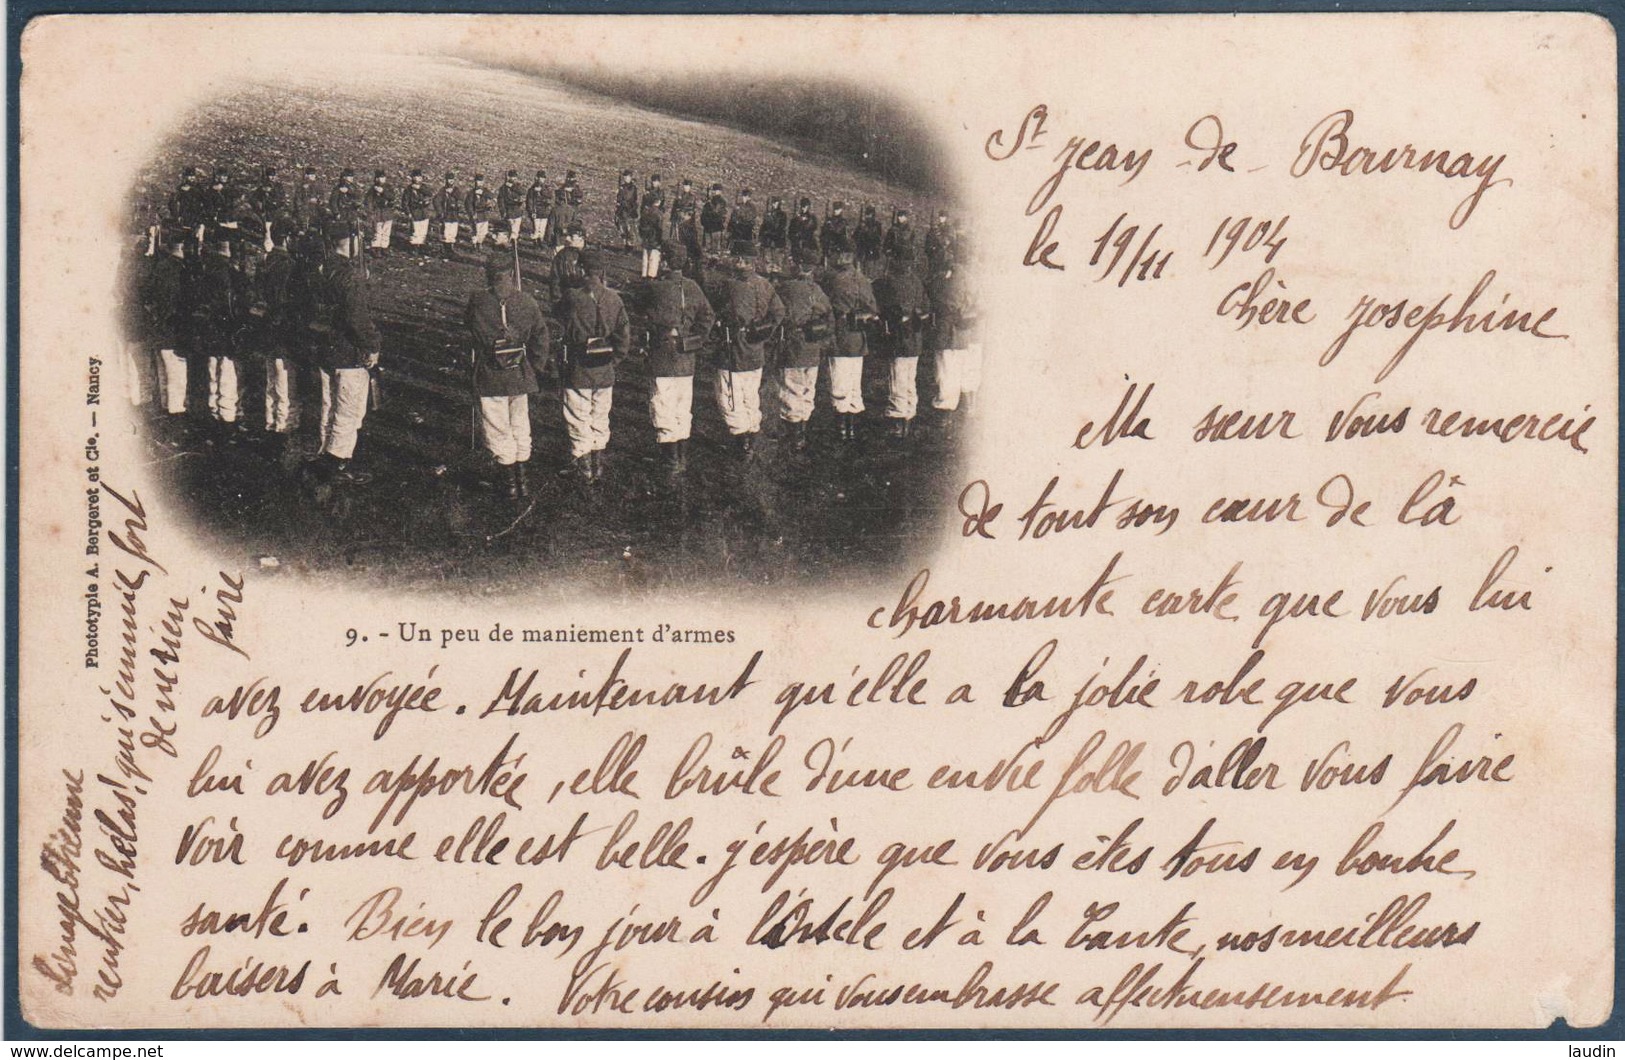 St Jean - de - Bournay
le 19/11 1904
Chère Josephine
Ma sœur vous remercie
de tout son cœur de là
charmante carte que vous lui
avez envoyée. Maintenant qu'elle a la jolie robe que vous
lui avez apportée, elle brûle d'une envie folle d'aller vous faire
voir comme elle est belle. j'espère que vous êtes tous en bonne
santé. Bien le bon jour à l'Oncle et à la Tante, nos meilleurs
baisers à Marie. Votre cousin qui vous embrasse affectueusement
Etienne
rentier, hélas! qui s'ennuie fort
de ne rien
faire
9. - Un peu de maniement d'armes
Phototypie A. Bergeret et Cie. — Nancy
delcampe.net
laudin